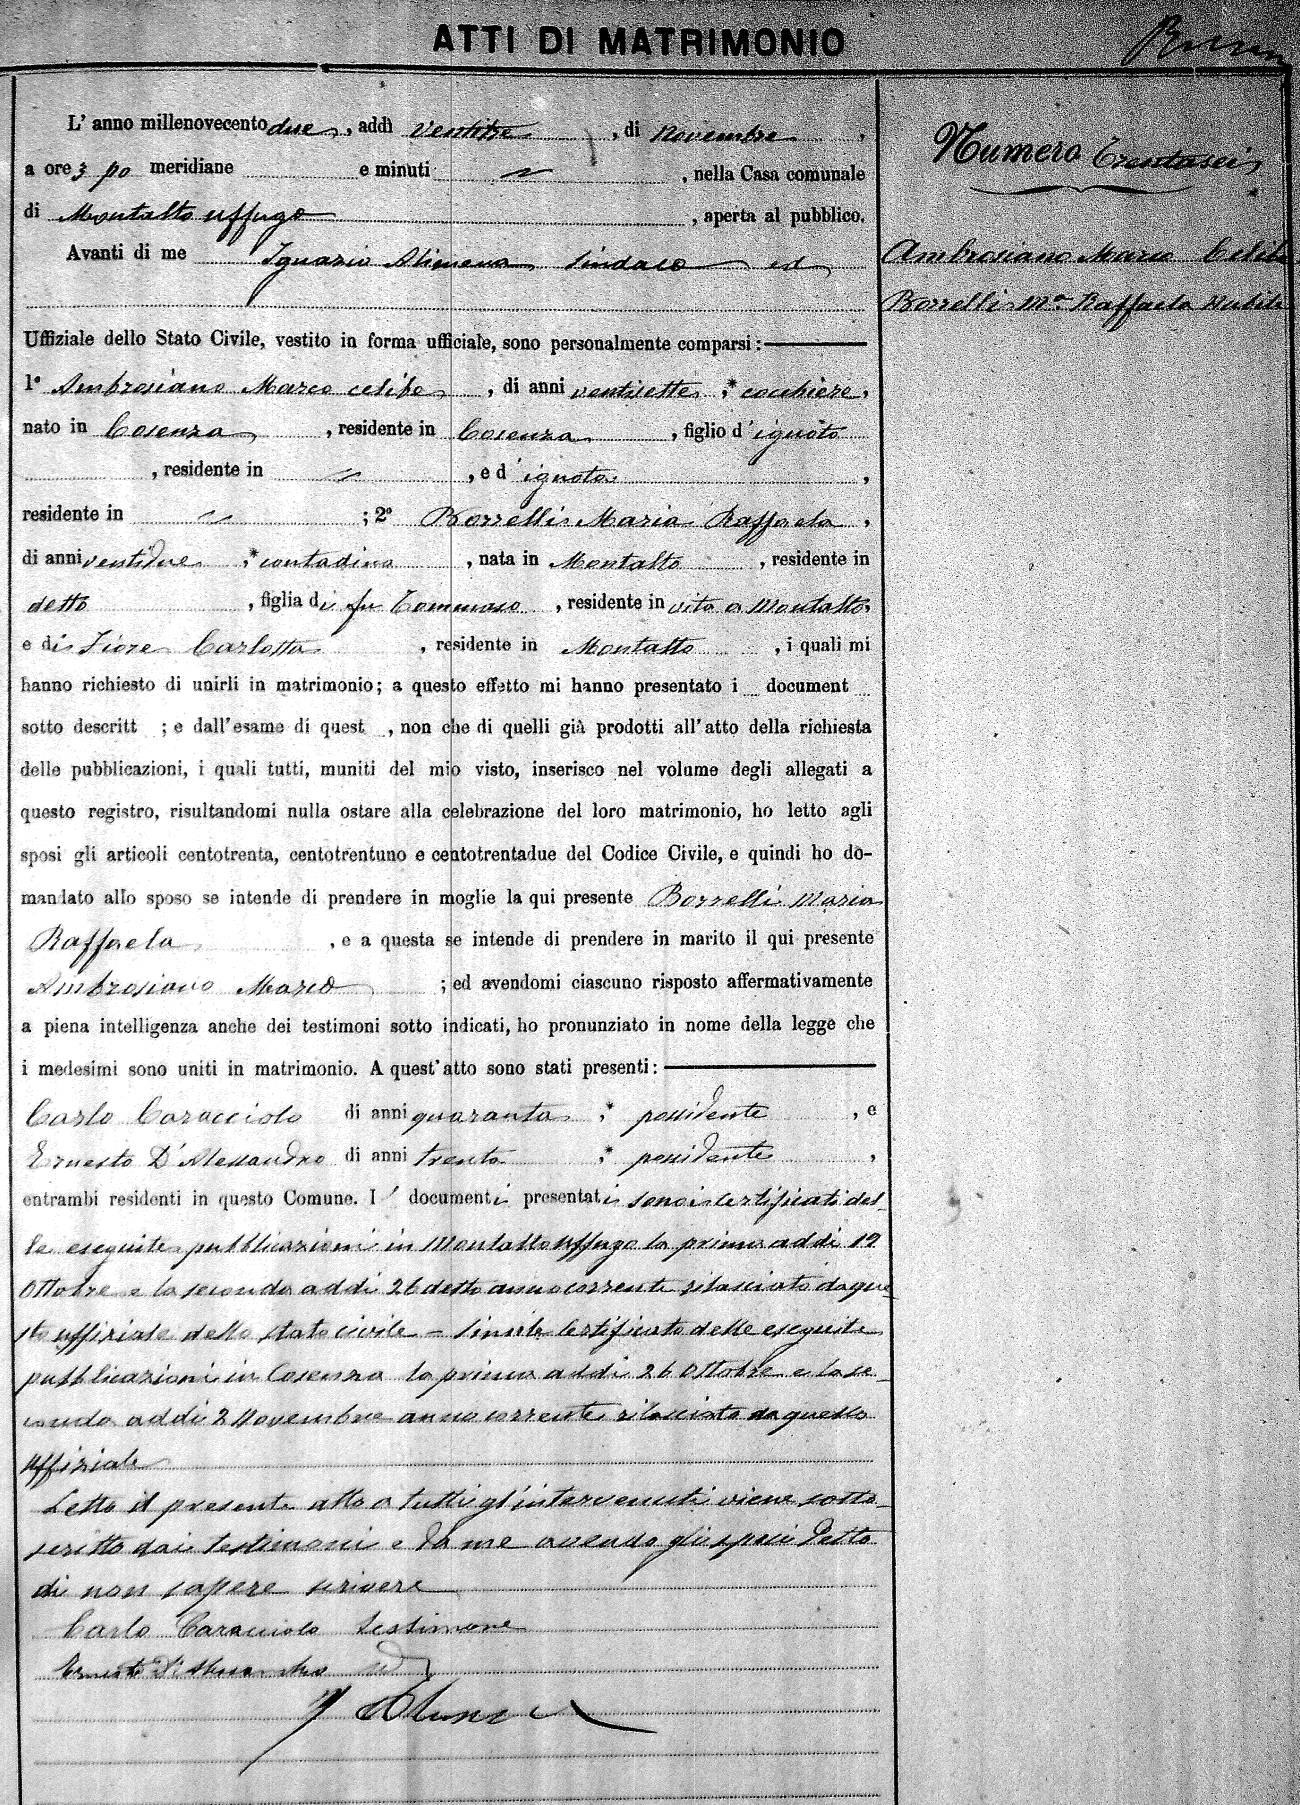 ATTI DI MATRIMONIO
Numero Trentasei
Ambrosiano Marco Celibe
Borrelli Mª Raffaela Nubile
L' anno millenovecento due, addì ventitre, di Novembre,
a ore 3 po meridiane e minuti //, nella Casa comunale
di Montalto Uffugo, aperta al pubblico.
Avanti di me Ignazio Alimena Sindaco ed
Uffiziale dello Stato Civile, vestito in forma ufficiale, sono personalmente comparsi:
1º Ambrosiano Marco celibe, di anni ventisette,* cocchiere,
nato in Cosenza, residente in Cosenza, figlio d'ignoto
, residente in //, e d'ignota,
residente in //; 2º Borrelli Maria Raffaela,
di anni ventidue,* contadina, nata in Montalto, residente in
detto, figlia di fu Tommaso, residente in vita a Montalto,
e di Fiore Carlotta, residente in Montalto, i quali mi
hanno richiesto di unirli in matrimonio; a questo effetto mi hanno presentato i document
sotto descritt ; e dall'esame di quest , non che di quelli già prodotti all'atto della richiesta
delle pubblicazioni, i quali tutti, muniti del mio visto, inserisco nel volume degli allegati a
questo registro, risultandomi nulla ostare alla celebrazione del loro matrimonio, ho letto agli
sposi gli articoli centotrenta, centotrentuno e centotrentadue del Codice Civile, e quindi ho do-
mandato allo sposo se intende di prendere in moglie la qui presente Borrelli Maria
Raffaela, e a questa se intende di prendere in marito il qui presente
Ambrosiano Marco; ed avendomi ciascuno risposto affermativamente
a piena intelligenza anche dei testimoni sotto indicati, ho pronunziato in nome della legge che
i medesimi sono uniti in matrimonio. A quest'atto sono stati presenti:
Carlo Caracciolo di anni quaranta,* possidente, e
Ernesto D'Alessandro di anni trenta,* possidente,
entrambi residenti in questo Comune. I documenti presentati sono i certificati del-
le eseguite pubblicazioni in Montalto Uffugo la prima addi 19
Ottobre e la seconda addi 26 detto anno corrente rilasciato da que-
sto uffiziale dello stato civile – Simile certificato delle eseguite
pubblicazioni in Cosenza la prima addi 26 Ottobre e la se-
conda addi 2 Novembre anno corrente rilasciato da quello
uffiziale
Letto il presente atto a tutti gl'intervenuti viene sotto-
scritto dai testimoni e da me avendo gli sposi detto
di non sapere scrivere
Carlo Caracciolo testimone
Ernesto D'Alessandro id
I Alimena